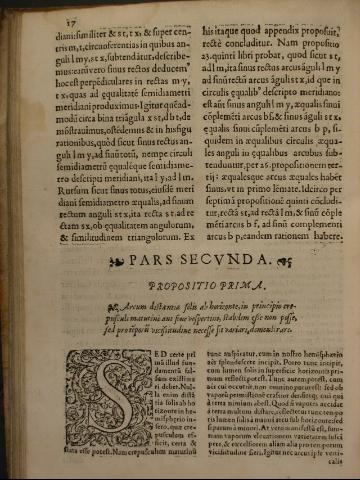 17
dianisimilitet & s t, t x, & super cen-
tris m, t, circuferentias in quibus an-
guli l m y, s t x, subtendātur, describe-
mus: earū vero sinus rectos ducem⁹
hoc est perpēdiculares in rectas m y,
t x, quas ad equalitatē semidiametri
meridiani produximus. Igitur quēad-
modū circa bina triāgula x s t, d b t, de
mōstrauimus, ostēdemus & in his figu
rationibus, quòd sicut sinus rectus an-
guli l m y, ad sinū totū, nempe circuli
semidiametrū equalēque semidiame-
tro descripti meridiani, ita l y, ad l m.
Rursum sicut sinus totus, eiusdē meri
diani semidiametro æqualis, ad sinum
rectum anguli s t x, ita recta s t, ad re
ctam s x, ob equalitatem angulorum,
& similitudinem triangulorum. Ex
his itaque quod appendix proposuit,
rectè concluditur. Nam propositio
23. quinti libri probat, quod sicut s t,
ad l m, ita sinus rectus arcus āguli l m y
ad sinū rectū arcus āguli s t x, id que in
circulis equalib⁹ descripto meridiano:
est aūt sinus anguli l m y, æqualis sinui
cōplemēti arcus b f, & sinus āguli s t x,
equalis sinui cōplemēti arcus b p, si-
quidem in æqualibus circulis æqua-
les anguli in equalibus arcubus sub-
tenduntur, per 25. propositionem ter-
tij: æqualesque arcus æquales habēt
sinus, vt in primo lēmate. Idcirco per
septimā propositionē quinti cōcludi-
tur, recta s t, ad rectā l m, & sinū cōple
mēti arcus b f, ad sinū complementi
arcus b p, eandem rationem habere.
PARS SECVNDA.
PROPOSITIO PRIMA.
Arcum distantiæ solis ab horizonte, in principio cre-
pusculi matutini aut fine vespertini, stabilem esse non posse,
sed pro tēporū vicissitudine necesse sit variari, demonstrare.
SED certè pri
mū illud fun-
damentū fal-
sum existima
ri debet. Nul-
la enim distā
tia solis ab ho
rizonte in he-
misphærio in-
fero, quæ cre-
pusculum ef-
ficit, certa &
stata esse potest. Nam crepusculum matutinū
tunc auspicatur, cum in nostro hemisphærio
aër splendescere incipit. Porro tunc incipit,
cum lumen solis in superficie horizontis pri-
mum reflecti potest. Tunc autem potest, cum
aër
vaporū
à terra
à terra multum distare,
ris lumen solis
sparum à minori, & è
mum vaporum
pere, & excelsiorem aliàs, pro temporum
vicissitudine fieri, igitur nec vapores verti-
calis